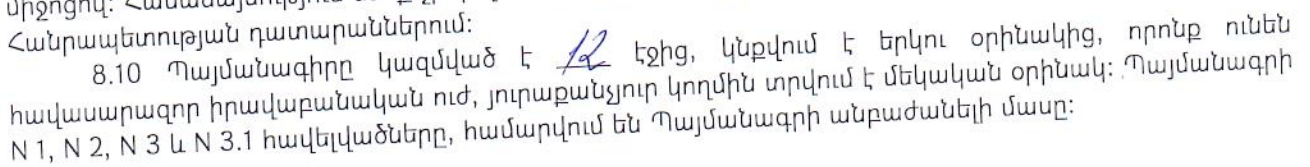 միջոցով:
Հանրապետության դատարաններում:
8.10 Պայմանագիրը կազմված է 12 էջից, կնքվում է երկու օրինակից, որոնք ունեն
հավասարազոր իրավաբանական ուժ, յուրաքանչյուր կողմին տրվում է մեկական օրինակ: Պայմանագրի
N 1, N 2, N 3 և N 3.1 հավելվածները, համարվում են Պայմանագրի անբաժանելի մասը: